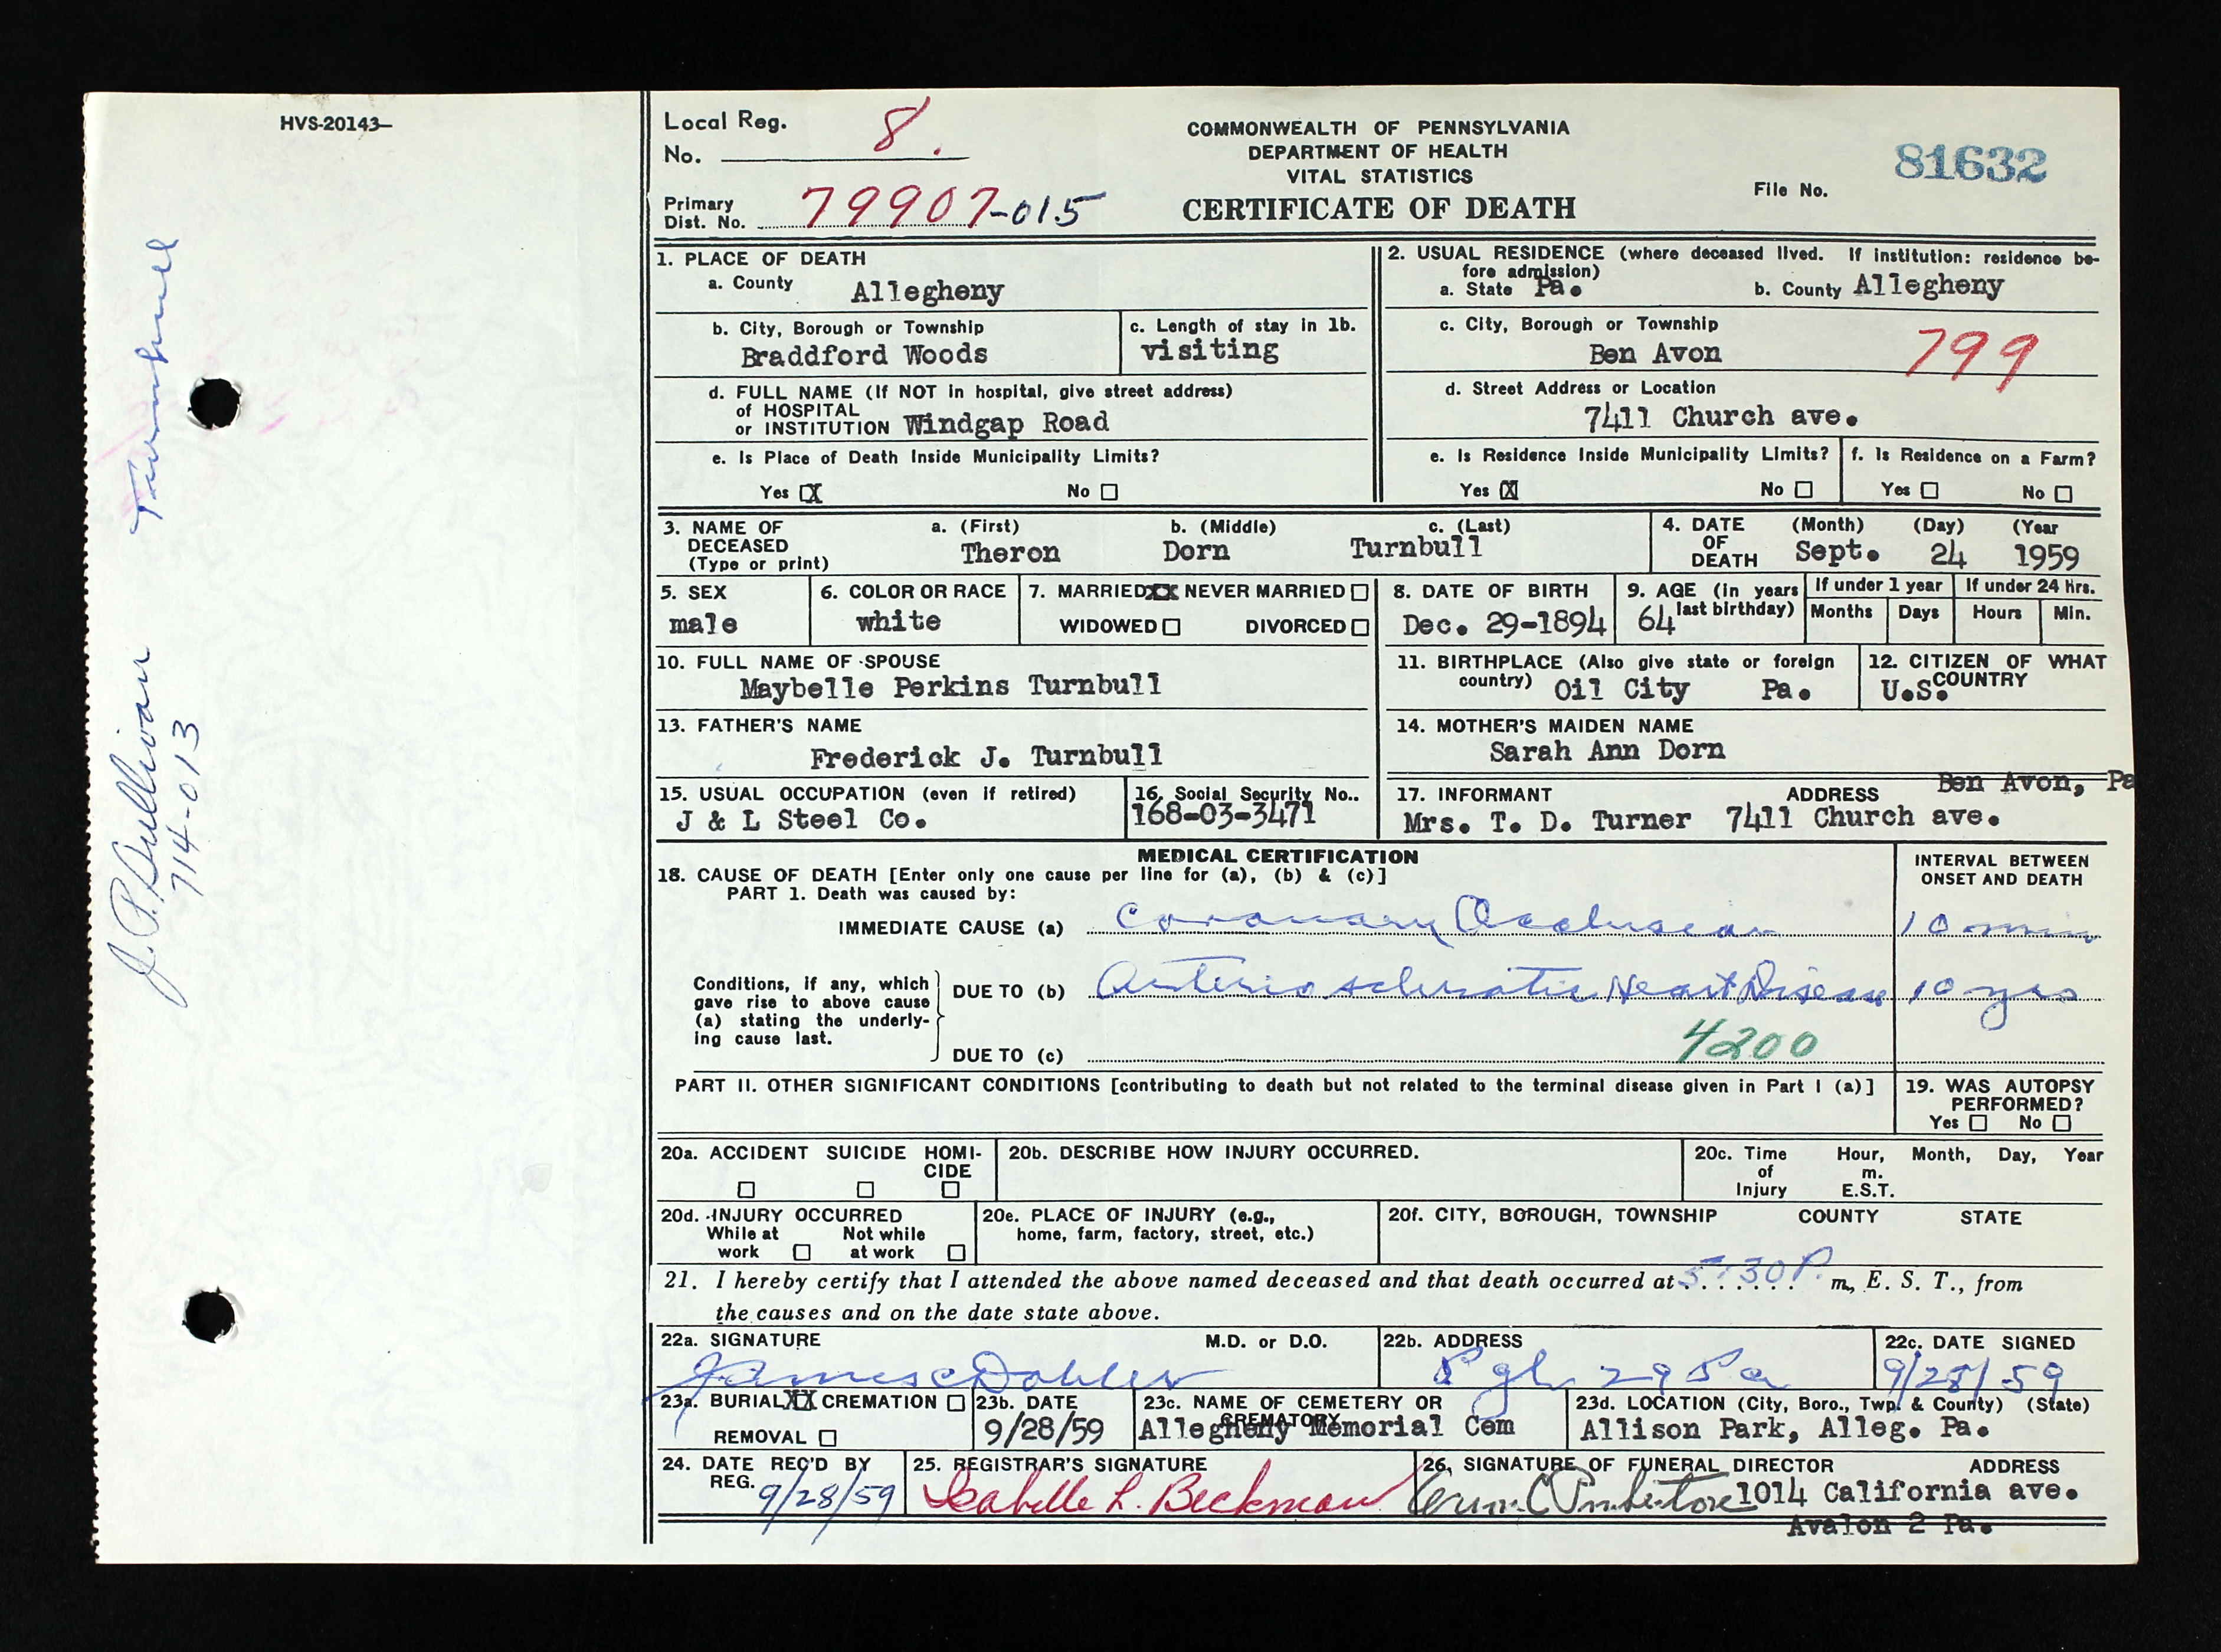 HVS-20143—
Turnbull
J. P. Sullivan
714-013
Local Reg.
No. 8.
Primary
Dist. No. 79907-015
COMMONWEALTH OF PENNSYLVANIA
DEPARTMENT OF HEALTH
VITAL STATISTICS
CERTIFICATE OF DEATH
File No.
81632
1. PLACE OF DEATH
a. County Allegheny
b. City, Borough or Township
Braddford Woods
c. Length of stay in 1b.
visiting
d. FULL NAME (If NOT in hospital, give street address)
of HOSPITAL
or INSTITUTION Windgap Road
e. Is Place of Death Inside Municipality Limits?
Yes X No
2. USUAL RESIDENCE (where deceased lived. If institution: residence be-
fore admission)
a. State Pa. b. County Allegheny
c. City, Borough or Township
Ben Avon
799
d. Street Address or Location
7411 Church ave.
e. Is Residence Inside Municipality Limits?
Yes X No
f. Is Residence on a Farm?
Yes No
3. NAME OF a. (First) b. (Middle) c. (Last)
DECEASED
(Type or print)
Theron Dorn Turnbull
4. DATE (Month) (Day) (Year
OF
DEATH Sept. 24 1959
5. SEX
male
6. COLOR OR RACE
white
7. MARRIED XX NEVER MARRIED
WIDOWED DIVORCED
8. DATE OF BIRTH
Dec. 29-1894
9. AGE (in years
last birthday)
64
If under 1 year
Months Days
If under 24 hrs.
Hours Min.
10. FULL NAME OF SPOUSE
Maybelle Perkins Turnbull
11. BIRTHPLACE (Also give state or foreign
country) Oil City Pa.
12. CITIZEN OF WHAT
COUNTRY
U.S.
13. FATHER'S NAME
Frederick J. Turnbull
14. MOTHER'S MAIDEN NAME
Sarah Ann Dorn
15. USUAL OCCUPATION (even if retired)
J & L Steel Co.
16. Social Security No..
168-03-3471
17. INFORMANT ADDRESS Ben Avon, Pa
Mrs. T. D. Turner 7411 Church ave.
MEDICAL CERTIFICATION
18. CAUSE OF DEATH [Enter only one cause per line for (a), (b) & (c)]
PART 1. Death was caused by:
INTERVAL BETWEEN
ONSET AND DEATH
IMMEDIATE CAUSE (a) Coronary Occlusion 10 min
Conditions, if any, which
gave rise to above cause
(a) stating the underly-
ing cause last.
DUE TO (b) Arteriosclerotic Heart Disease 10 yrs
4200
DUE TO (c)
PART II. OTHER SIGNIFICANT CONDITIONS [contributing to death but not related to the terminal disease given in Part I (a)]
19. WAS AUTOPSY
PERFORMED?
Yes No
20a. ACCIDENT SUICIDE HOMI-
CIDE
20b. DESCRIBE HOW INJURY OCCURRED.
20c. Time Hour, Month, Day, Year
of m.
Injury E.S.T.
20d. INJURY OCCURRED
While at Not while
work at work
20e. PLACE OF INJURY (e.g.,
home, farm, factory, street, etc.)
20f. CITY, BOROUGH, TOWNSHIP COUNTY STATE
21. I hereby certify that I attended the above named deceased and that death occurred at 5:30 P. m., E. S. T., from
the causes and on the date state above.
22a. SIGNATURE M.D. or D.O.
James C
22b. ADDRESS
Pgh 29 Pa
22c. DATE SIGNED
9/28/59
23a. BURIAL XX CREMATION
REMOVAL
23b. DATE
9/28/59
23c. NAME OF CEMETERY OR
CREMATORY
Allegheny Memorial Cem
23d. LOCATION (City, Boro., Twp. & County) (State)
Allison Park, Alleg. Pa.
24. DATE REC'D BY
REG. 9/28/59
25. REGISTRAR'S SIGNATURE
Isabelle L. Beckman
26. SIGNATURE OF FUNERAL DIRECTOR ADDRESS
1014 California ave.
Avalon 2 Pa.